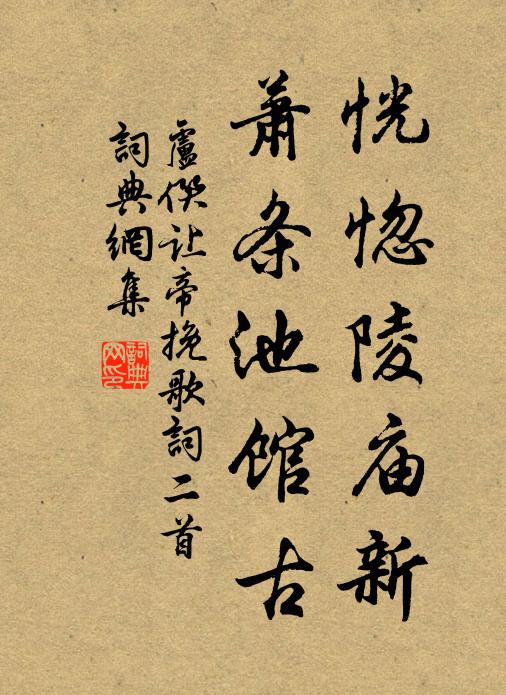 恍惚陵庙新
萧条池馆古
盧僎让帝挽歌詞二首
詞典網集
詞典网印